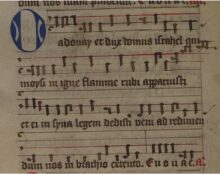 O
adonay et dux domus israhel qui
moysi in igne flamme rubi apparuisti
et ei in syna legem dedisti veni ad redimen
dum nos in brachio extento. E u o u a e.